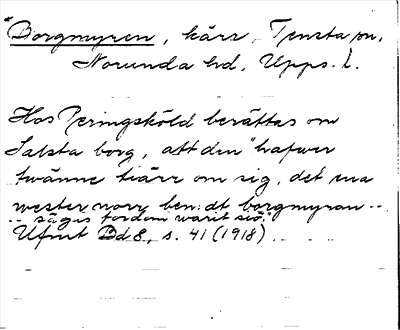 "Borgmyren, kärr, Tensta sn,
Norunda hd, Upps. l.
Hos Peringsköld berättas om
Salsta borg, att den "hafwer
twänne tiärr om sig, det ena
wester norr ben: dt borgmyran --
-- sägis fordom warit siö."
Ufmt Bd 8, s. 41 (1918)